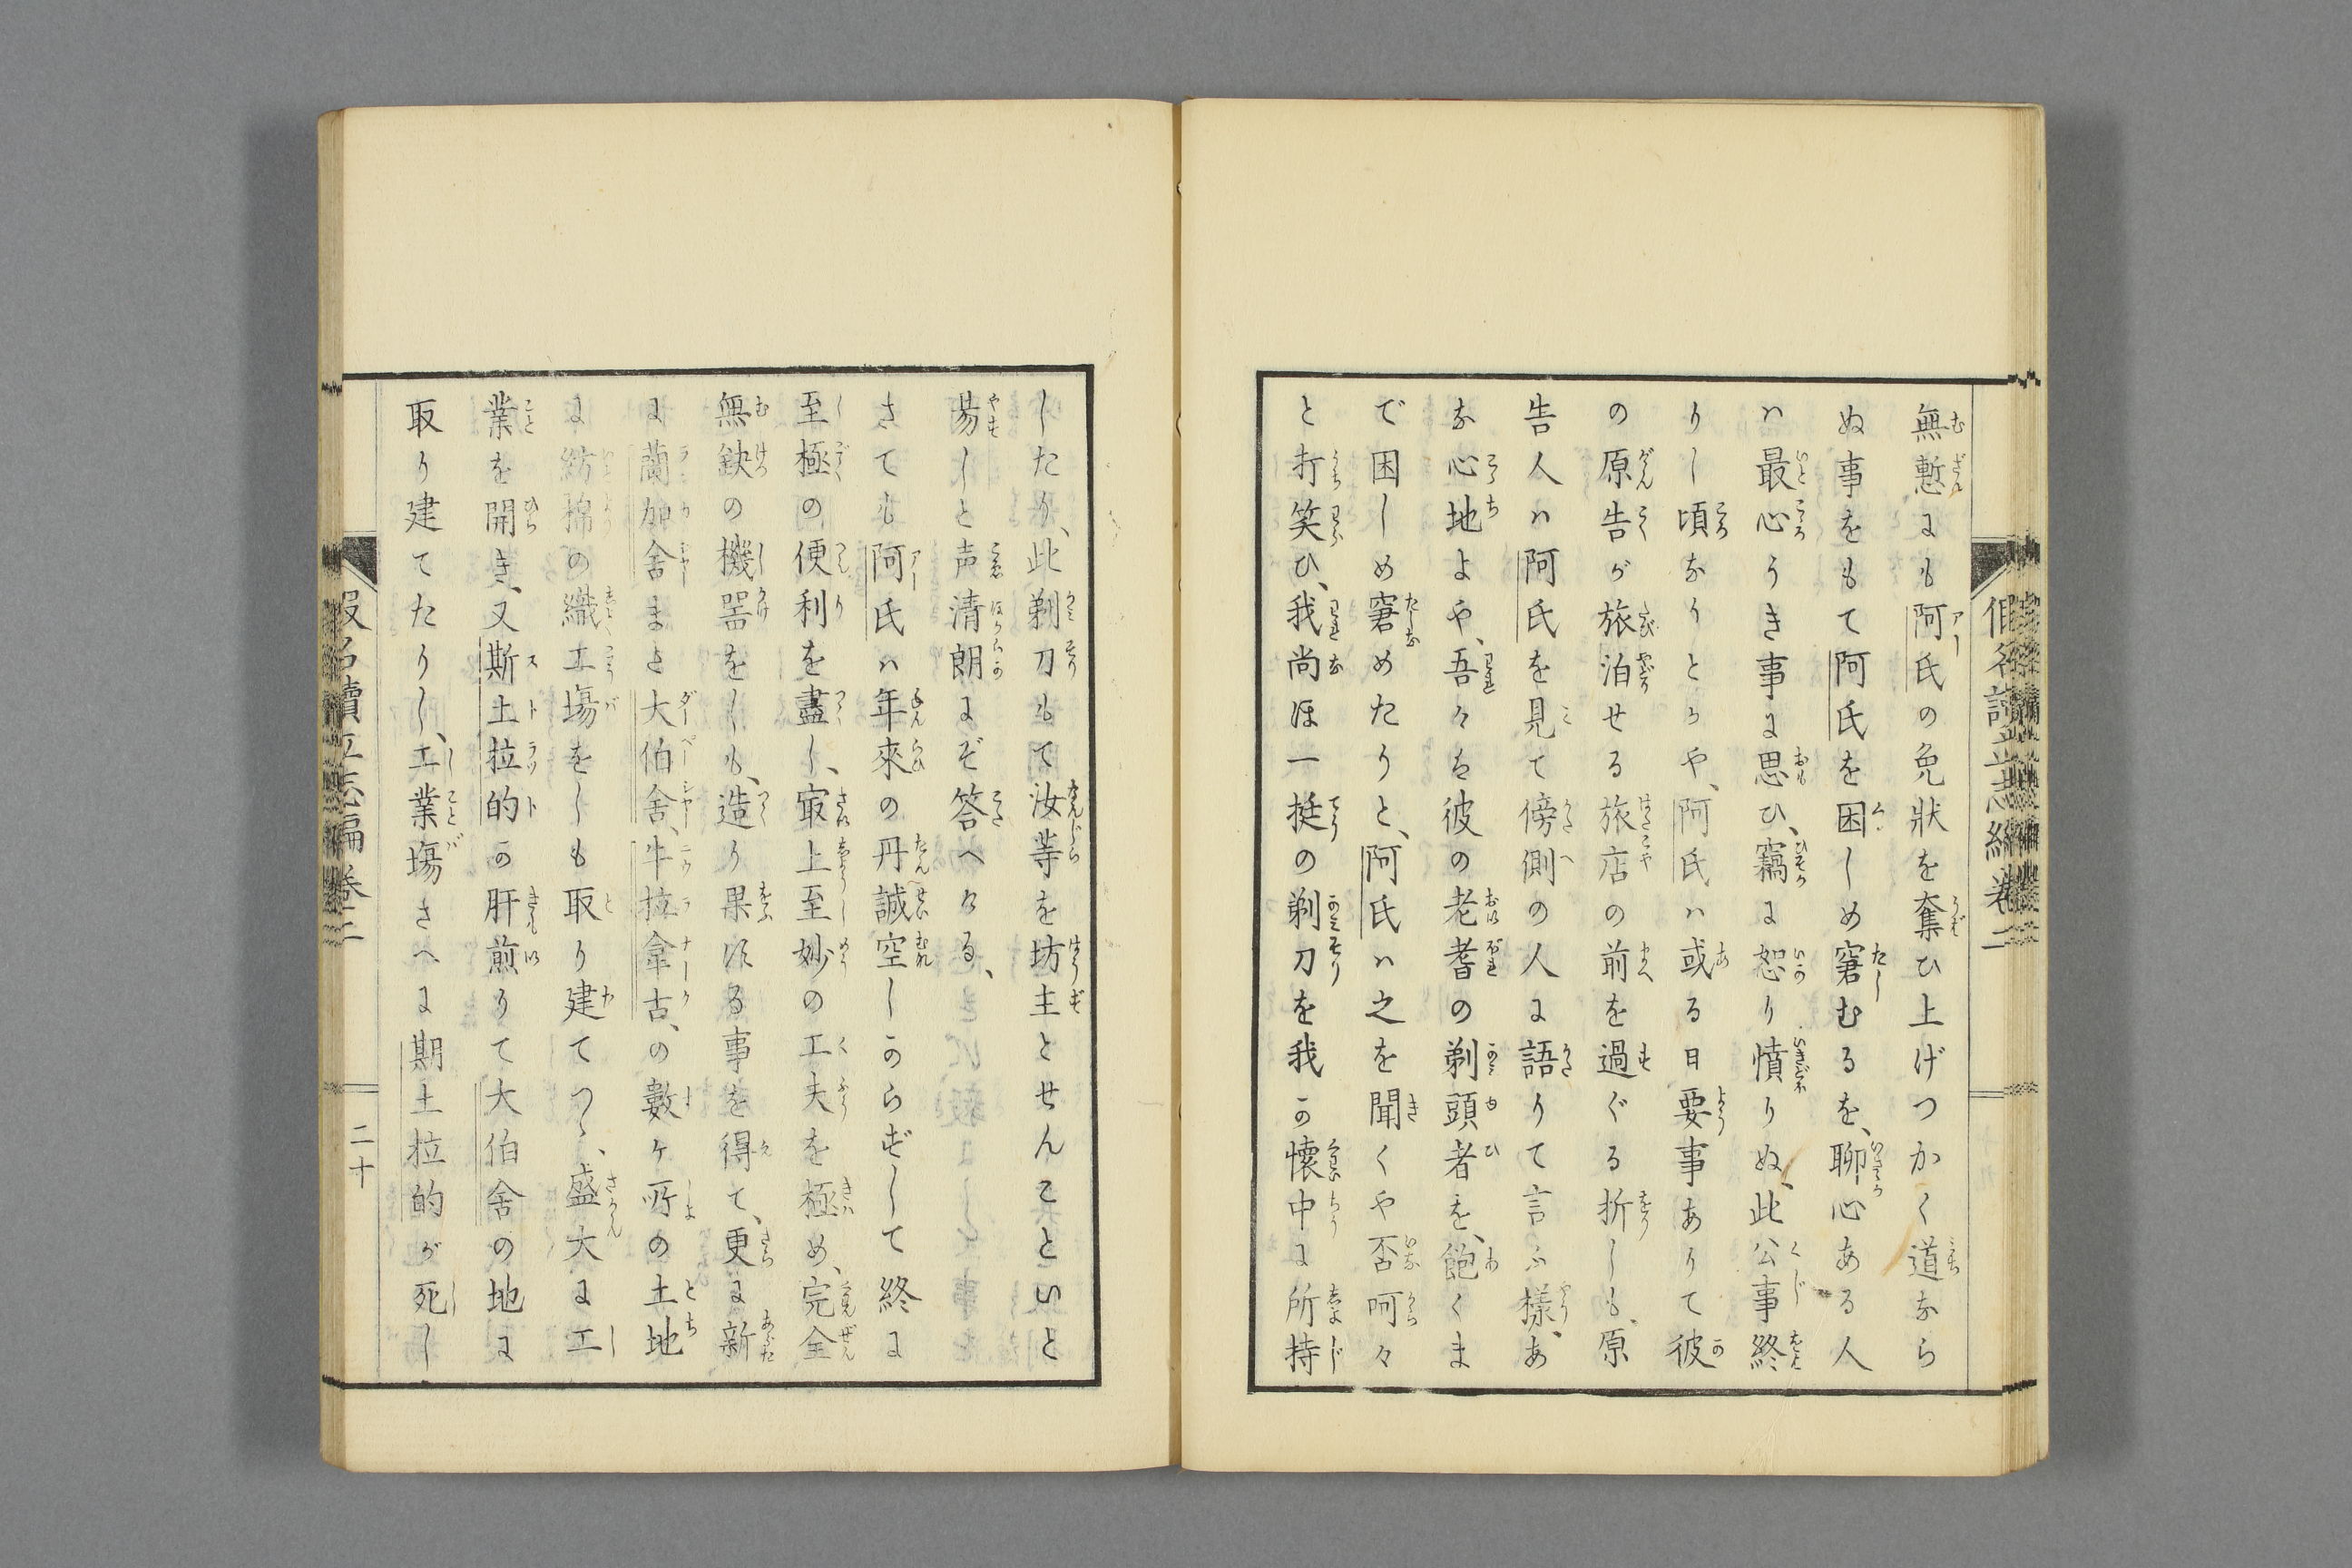 無慙にも阿氏の免狀を奪ひ上げつかく道なら
ぬ事をもて阿氏を困しめ窘むるを、聊心ある人
ハ最心うき事に思ひ、竊に恕り憤りぬ、此公事終
りし頃なりとかや、阿氏ハ或る日要事ありて彼
の原告が旅泊せる旅店の前を過ぐる折しも、原
告人ハ阿氏を見て傍側の人に語りて言ふ樣、あ
な心地よや、吾々は彼の老耆の剃頭者を、飽くま
で困しめ窘めたりと、阿氏ハ之を聞くや否呵々
と打笑ひ、我尚ほ一挺の剃刀を我か懷中に所持
したり、此剃刀もて汝等を坊主とせんこといと
易しと声清朗にぞ答へける、
さても阿氏ハ年來の丹誠空しからずして終に
至極の便利を盡し、㝡上至妙の工夫を極め、完全
無缺の機噐をしも、造り果する事を得て、更に新
に蘭加舍また大伯舍、牛拉拿古、の數ヶ所の土地
に紡棉の織工塲をしも取り建てつゝ、盛大に工
業を開き、又斯土拉的か肝煎りて大伯舍の地に
取り建てたりし、工業塲さへに期土拉的が死し
假名讀立志編卷二
二十